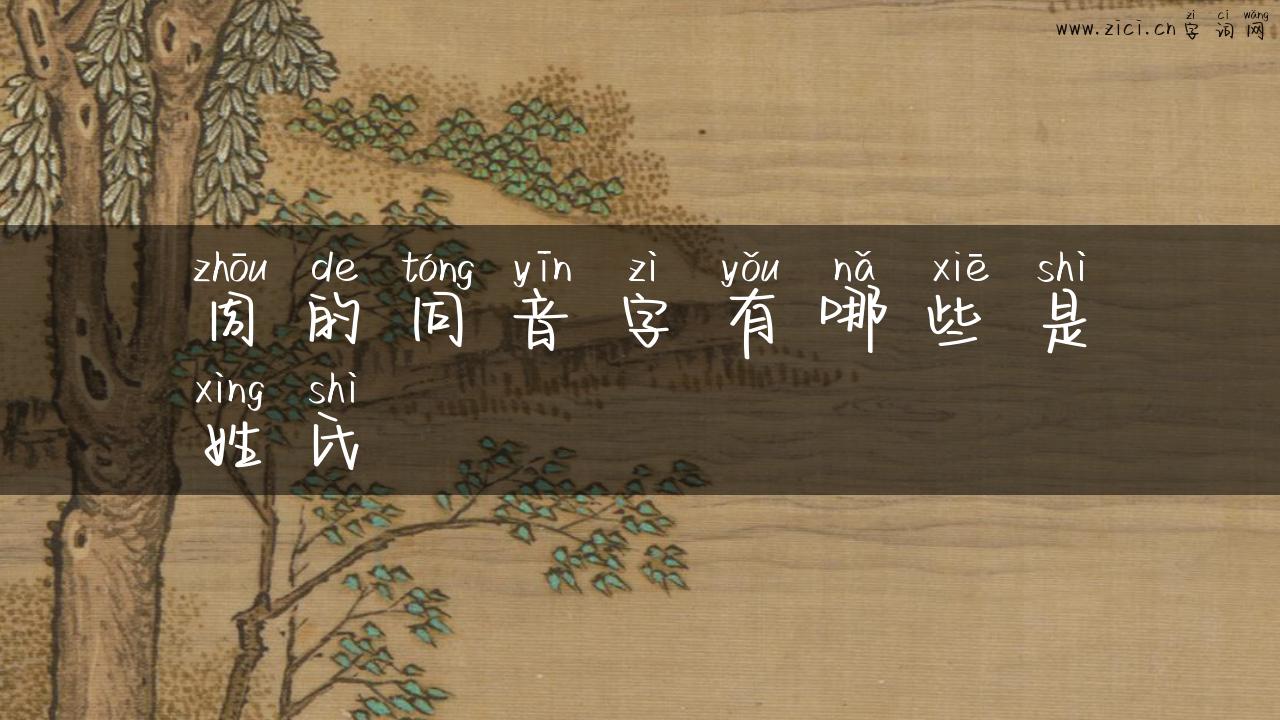 zì cí wǎng
www.zici.cn 字词网
zhōu de tóng yīn zì yǒu nǎ xiē shì
周的同音字有哪些是
xìng shì
姓氏